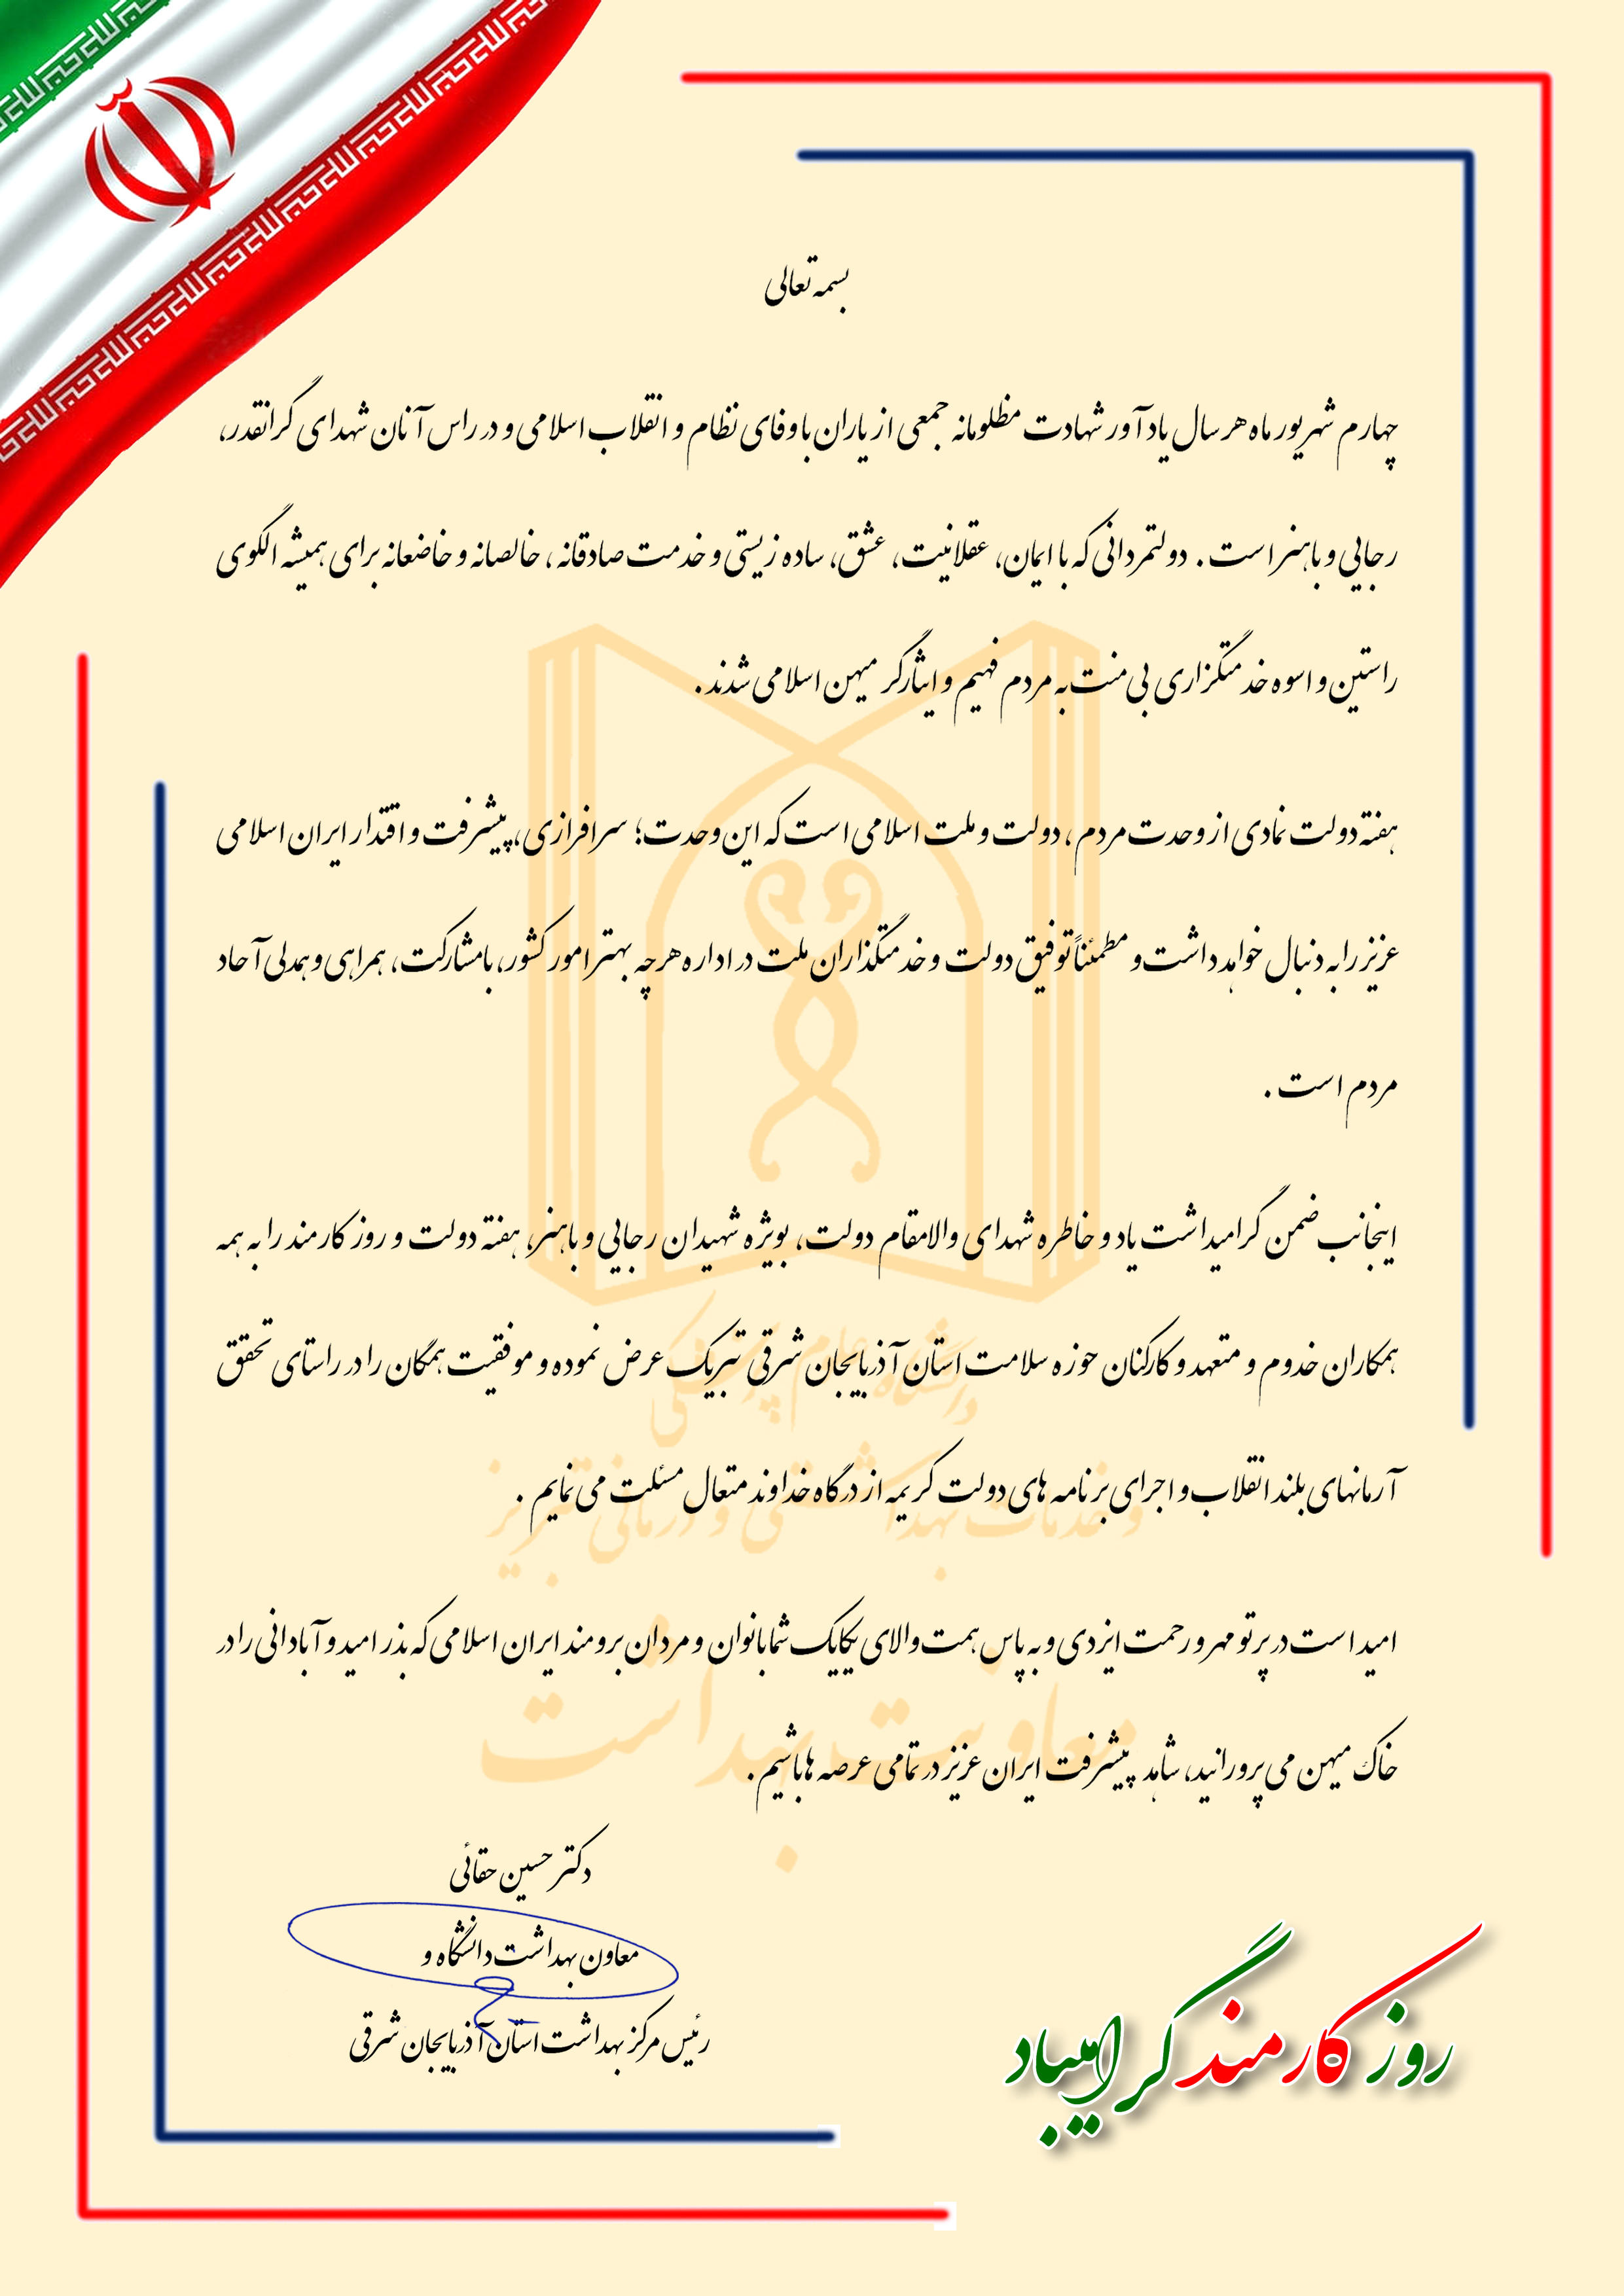 بسمه تعالی
چهارم شهریور ماه هر سال یادآور شهادت مظلومانه جمعی از یاران باوفای نظام و انقلاب اسلامی و در راس آنان شهدای گرانقدر،
رجایی و باهنر است. دولتمردانی که با ایمان، عقلانیت، عشق، ساده زیستی و خدمت صادقانه، خالصانه و خاضعانه برای همیشه الگوی
راستین و اسوه خدمتگزاری بی منت به مردم فهیم و ایثارگر میهن اسلامی شدند.
هفته دولت نمادی از وحدت مردم، دولت و ملت اسلامی است که این وحدت؛ سرافرازی، پیشرفت و اقتدار ایران اسلامی
عزیز را به دنبال خواهد داشت و مطمئناً توفیق دولت و خدمتگذاران ملت در اداره هرچه بهتر امور کشور، با مشارکت، همراهی و همدلی آحاد
مردم است.
اینجانب ضمن گرامیداشت یاد و خاطره شهدای والامقام دولت، بویژه شهیدان رجایی و باهنر، هفته دولت و روز کارمند را به همه
همکاران خدوم و متعهد و کارکنان حوزه سلامت استان آذربایجان شرقی تبریک عرض نموده و موفقیت همگان را در راستای تحقق
آرمانهای بلند انقلاب و اجرای برنامه های دولت کریمه از درگاه خداوند متعال مسئلت می نمایم.
امید است در پرتو مهر و رحمت ایزدی و به پاس همت والای یکایک شما بانوان و مردان برومند ایران اسلامی که بذر امید و آبادانی را در
خاک میهن می پرورانید، شاهد پیشرفت ایران عزیز در تمامی عرصه ها باشیم.
دکتر حسین حقائی
معاون بهداشت دانشگاه و
رئیس مرکز بهداشت استان آذربایجان شرقی
روز کارمند گرامیباد
دانشگاه علوم پزشکی
و خدمات بهداشتی و درمانی تبریز
معاونت بهداشت